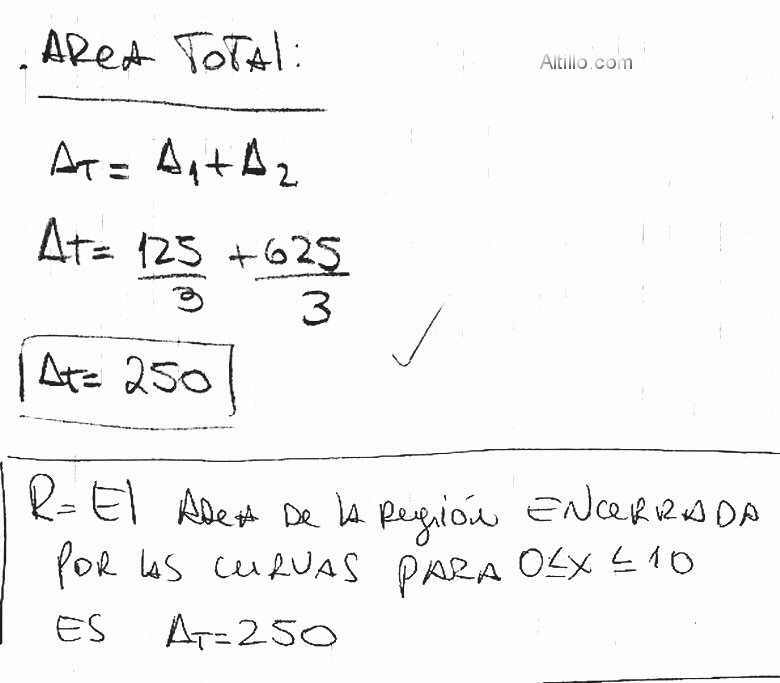 . AREA TOTAL:
Altillo.com
AT = A1 + A2
At = 125/3 + 625/3
At = 250
R = El AREA DE LA REGIÓN ENCERRADA
POR LAS CURVAS PARA 0 ≤ X ≤ 10
ES AT = 250